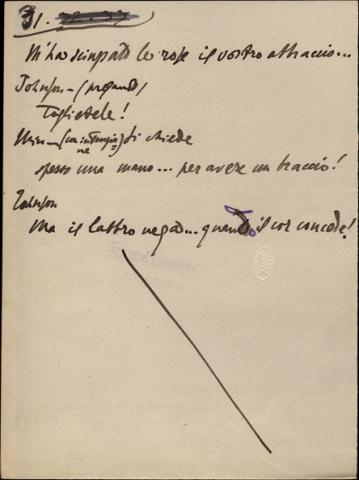 31.
M'ha sciupato le rose il vostro abbraccio...
Johnson - (pregando)
Toglietele!
Minnie (con intenzione) Si chiede
spesso una mano... per avere un braccio!
Johnson
Ma il labbro negar... quando il cor concede!